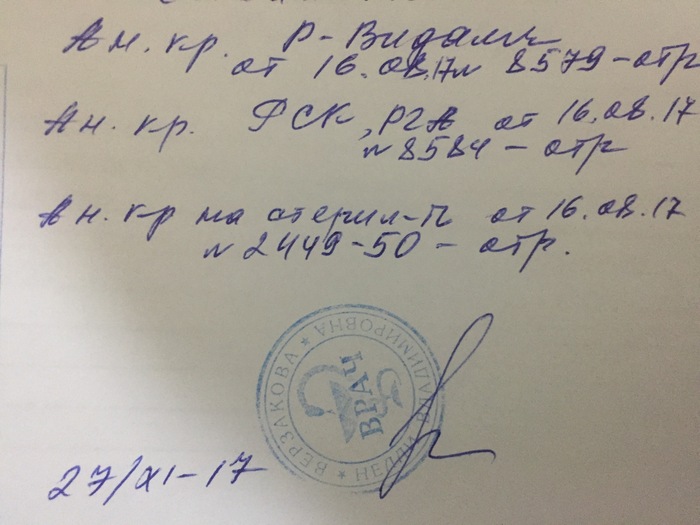 Ан. кр. Р-Видаля
от 16.08.17 № 8579-отр
Ан. кр. ФСК, РГА от 16.08.17
№ 8584 - отр
Ан. кр на стерил-ть от 16.08.17
№ 2449-50 - отр.
ВЕРЗАКОВА ★ НЕЛЛИ ВЛАДИМИРОВНА ★
ВРАЧ
27/XI-17